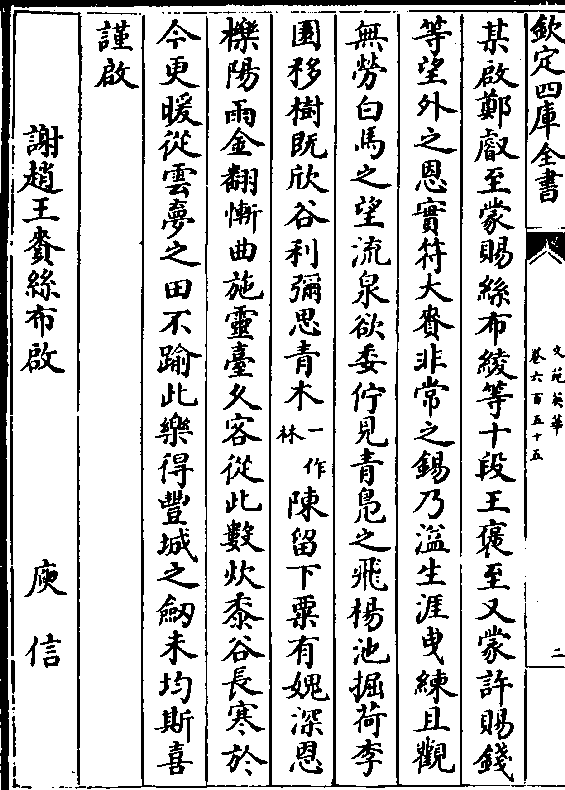 欽定四庫全書
文苑英華
卷六百五十五
二
某啟鄭叡至蒙賜絲布綾等十段王褒至又蒙許賜錢
等望外之恩實符大賚非常之錫乃溢生涯曳練且觀
無勞白馬之望流泉欲委佇見青鳬之飛楊池掘荷李
園移樹既欣谷利彌思青木一作林陳留下粟有媿深恩
櫟陽雨金翻慚曲施靈臺久客從此數炊黍谷長寒於
今更暖從雲夢之田不踰此樂得豐城之劒未均斯喜
謹啟
謝趙王賚絲布啟 庾信